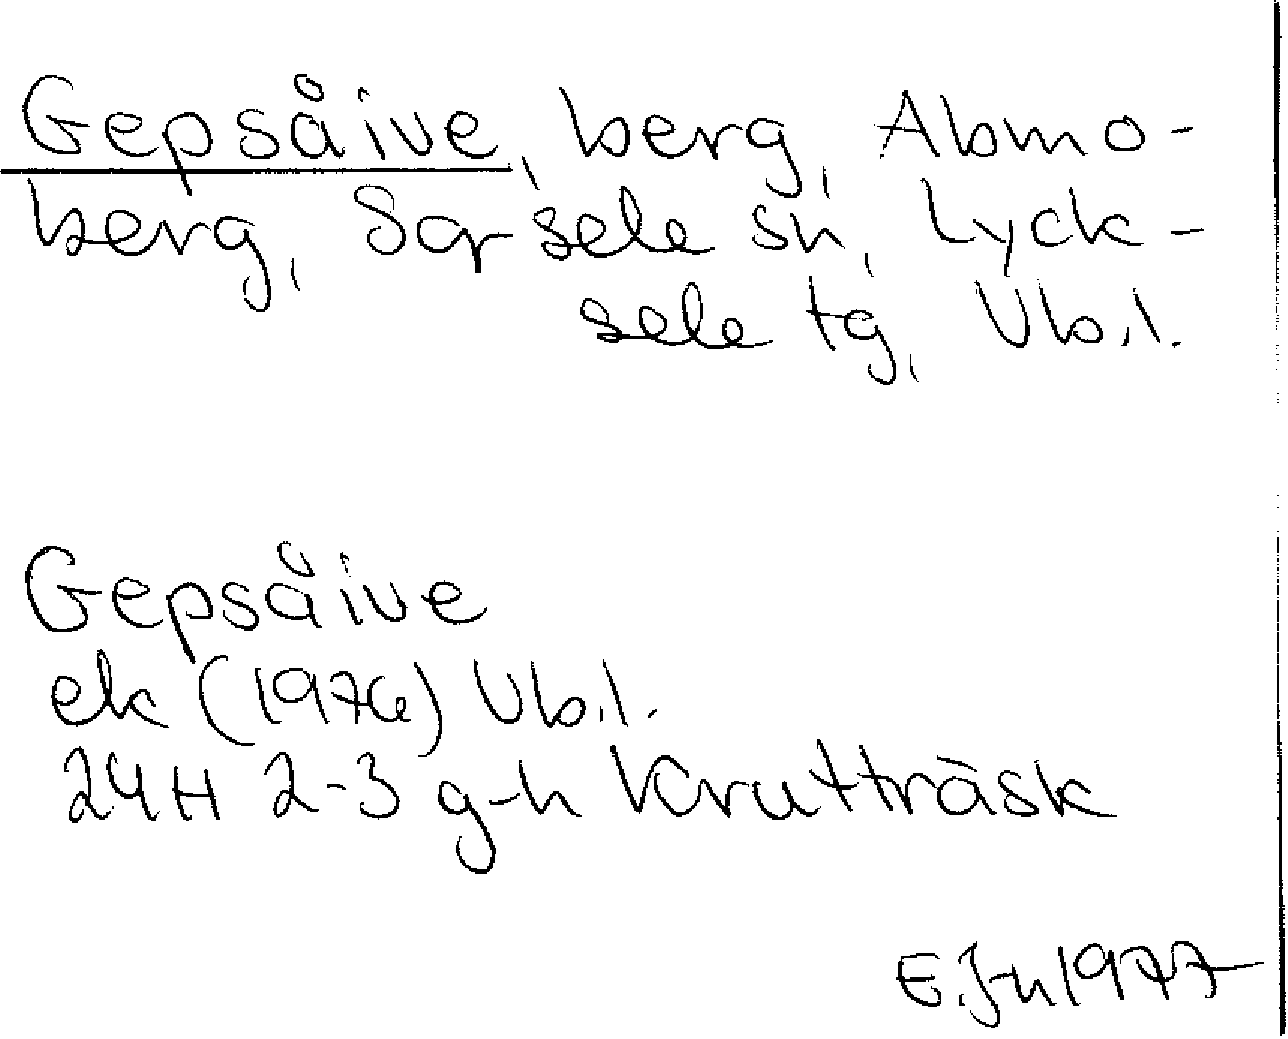 Gepsåive, berg, Abmo-
berg, Sorsele sn, Lyck-
sele tg, Vb.l.
Gepsåive
ek (1976) Vb.l.
24H 2-3 g-h Krutträsk
E.J-n 1977